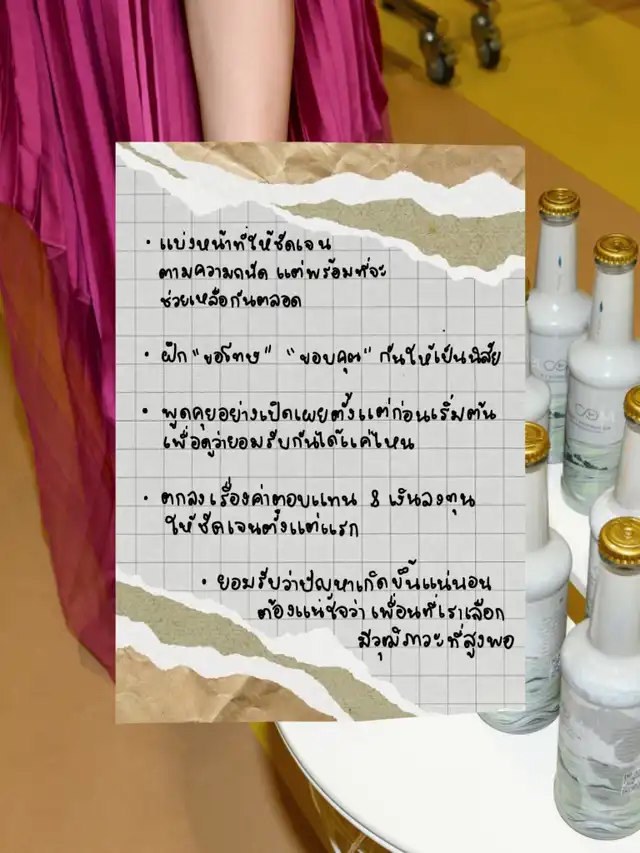 • แบ่งหน้าที่ให้ชัดเจน
ตามความถนัด แต่พร้อมที่จะ
ช่วยเหลือกันตลอด
• ฝึก "ขอโทษ" "ขอบคุณ" กันให้เป็นนิสัย
• พูดคุยอย่างเปิดเผยตั้งแต่ก่อนเริ่มต้น
เพื่อดูว่ายอมรับกันได้แค่ไหน
• ตกลงเรื่องค่าตอบแทน & เงินลงทุน
ให้ชัดเจนตั้งแต่แรก
• ยอมรับว่าปัญหาเกิดขึ้นแน่นอน
ต้องแน่ใจว่า เพื่อนที่เราเลือก
มีวุฒิภาวะที่สูงพอ